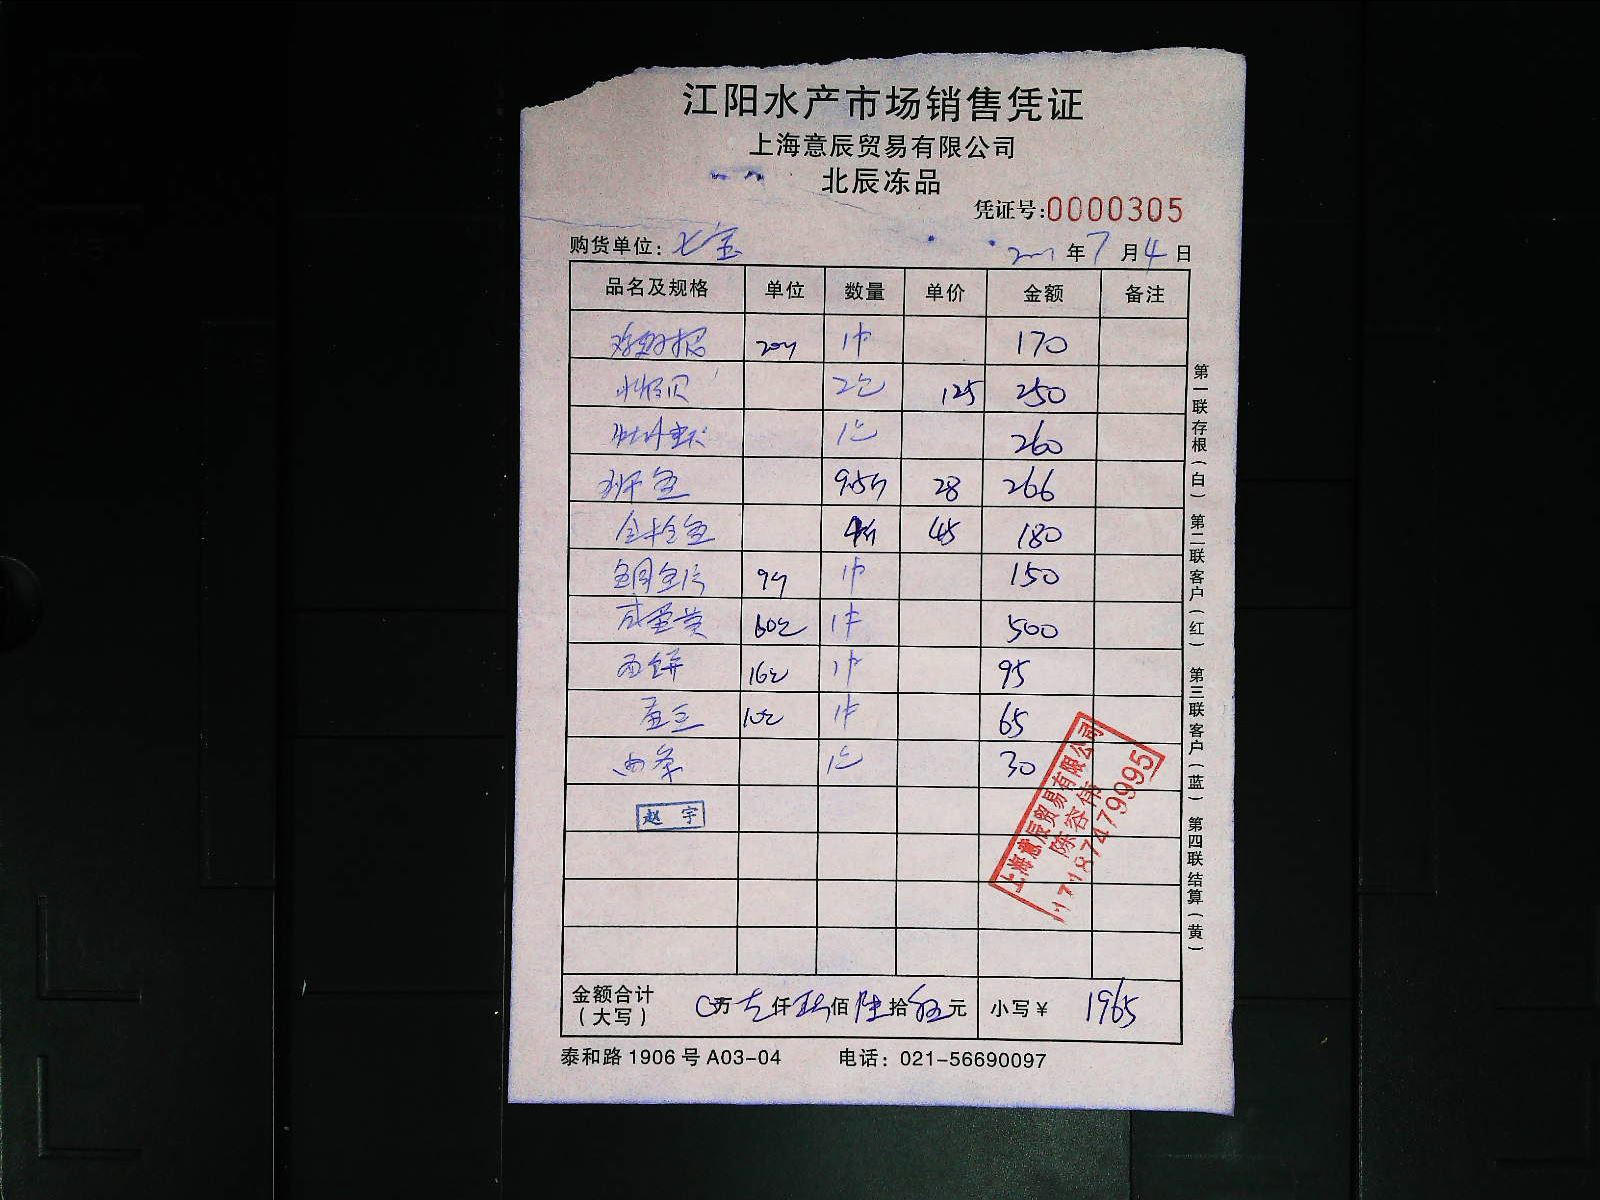 江阳水产市场销售凭证
上海意辰贸易有限公司
北辰冻品
凭证号:0000305
购货单位：七宝 年7月4日
品名及规格 单位 数量 单价 金额 备注
1件 170
贝 2包 125 250
1包 260
鱼 9.5斤 28 266
鱼 4斤 45 180
1件 150
咸蛋黄 60包 1件 500
西饼 16包 1件 95
10包 1件 65
1包 30
赵宇
上海意辰贸易有限公司
陈容伟
17187479995
金额合计（大写） 0万壹仟玖佰陆拾伍元 小写￥ 1965
泰和路1906号A03-04 电话：021-56690097
第一联存根（白） 第二联客户（红） 第三联客户（蓝） 第四联结算（黄）